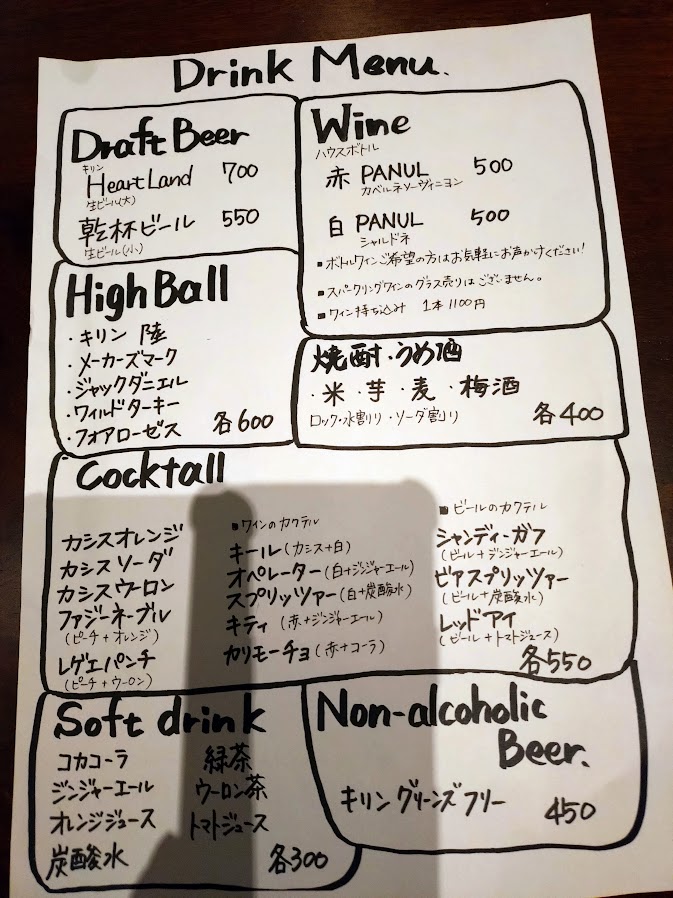 Drink Menu.
Draft Beer
キリン
Heart Land 700
生ビール(大)
乾杯ビール 550
生ビール(小)
Wine
ハウスボトル
赤 PANUL 500
カベルネソーヴィニヨン
白 PANUL 500
シャルドネ
▪ボトルワインご希望の方はお気軽にお声かけください!
▪スパークリングワインのグラス売りはございません。
▪ワイン持ち込み 1本 1100円
High Ball
・キリン 陸
・メーカーズマーク
・ジャックダニエル
・ワイルドターキー
・フォアローゼス 各600
焼酎・うめ酒
・米・芋・麦・梅酒
ロック・水割り・ソーダ割り 各400
Cocktall
カシスオレンジ
カシスソーダ
カシスウーロン
ファジーネーブル
(ピーチ+オレンジ)
レゲエパンチ
(ピーチ+ウーロン)
▪ワインのカクテル
キール(カシス+白)
オペレーター(白+ジンジャーエール)
スプリッツァー(白+炭酸水)
キティ(赤+ジンジャーエール)
カリモーチョ(赤+コーラ)
▪ビールのカクテル
シャンディーガフ
(ビール+ジンジャーエール)
ビアスプリッツァー
(ビール+炭酸水)
レッドアイ
(ビール+トマトジュース)
各550
Soft drink
コカコーラ 緑茶
ジンジャーエール ウーロン茶
オレンジジュース トマトジュース
炭酸水 各300
Non-alcoholic
Beer.
キリングリーンズフリー 450